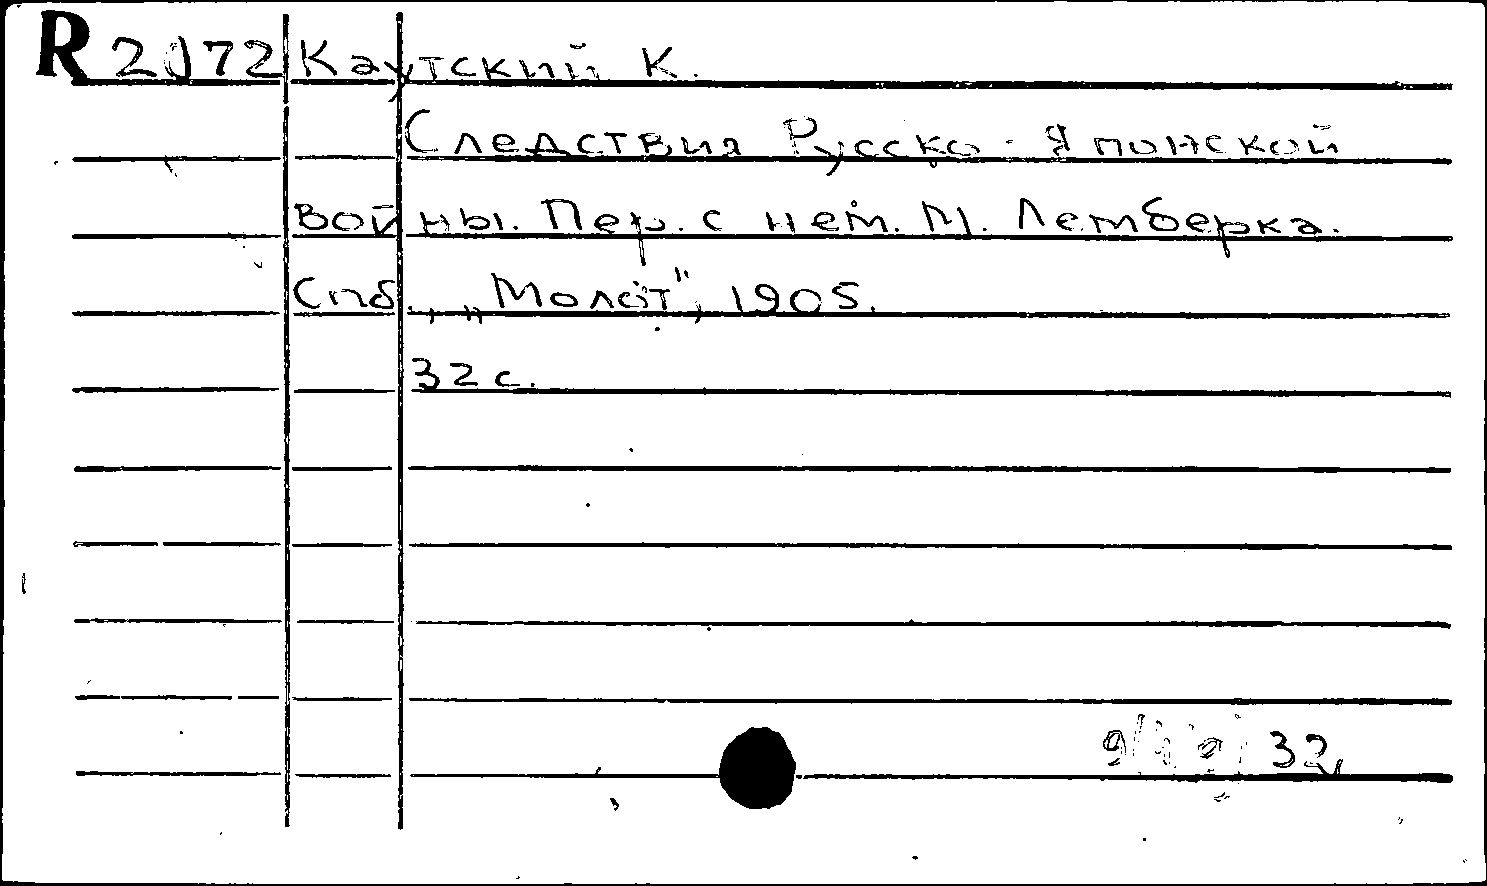 R 2072 Каутский К.
Следствия Русско-Японской
войны. Пер. с нем. М. Лемберка.
Спб., „Молот", 1905.
32 с.
32,